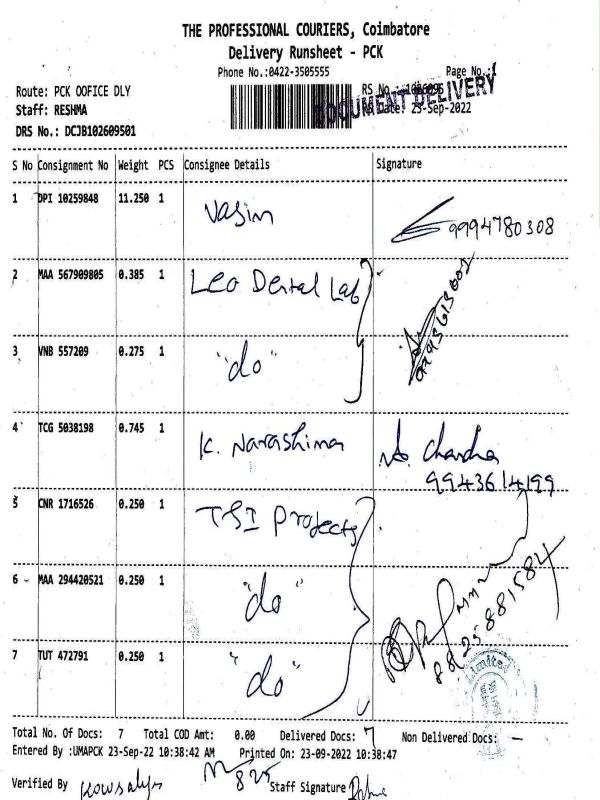 THE PROFESSIONAL COURIERS, Coimbatore
Delivery Runsheet - PCK
Phone No.:0422-3505555
Page No.:1
Route: PCK OOFICE DLY
RS No.:
Staff: RESHMA
DOCUMENT DELIVERY
Date: 23-Sep-2022
DRS No.: DCJB102609501
S No Consignment No Weight PCS Consignee Details Signature
1 DPI 10259848 11.250 1 Vasim 9994780308
2 MAA 567909805 0.385 1 Leo Dental Lab
3 VNB 557209 0.275 1 "do"
4 TCG 5038198 0.745 1 K. Narashiman Chandra
9943614199
5 CNR 1716526 0.250 1 TSI Projects
6 MAA 294420521 0.250 1 "do"
8825881584
7 TUT 472791 0.250 1 "do"
Limited
Total No. Of Docs: 7 Total COD Amt: 0.00 Delivered Docs: 7 Non Delivered Docs: -
Entered By :UMAPCK 23-Sep-22 10:38:42 AM Printed On: 23-09-2022 10:38:47
Verified By Kowsalya 825 Staff Signature